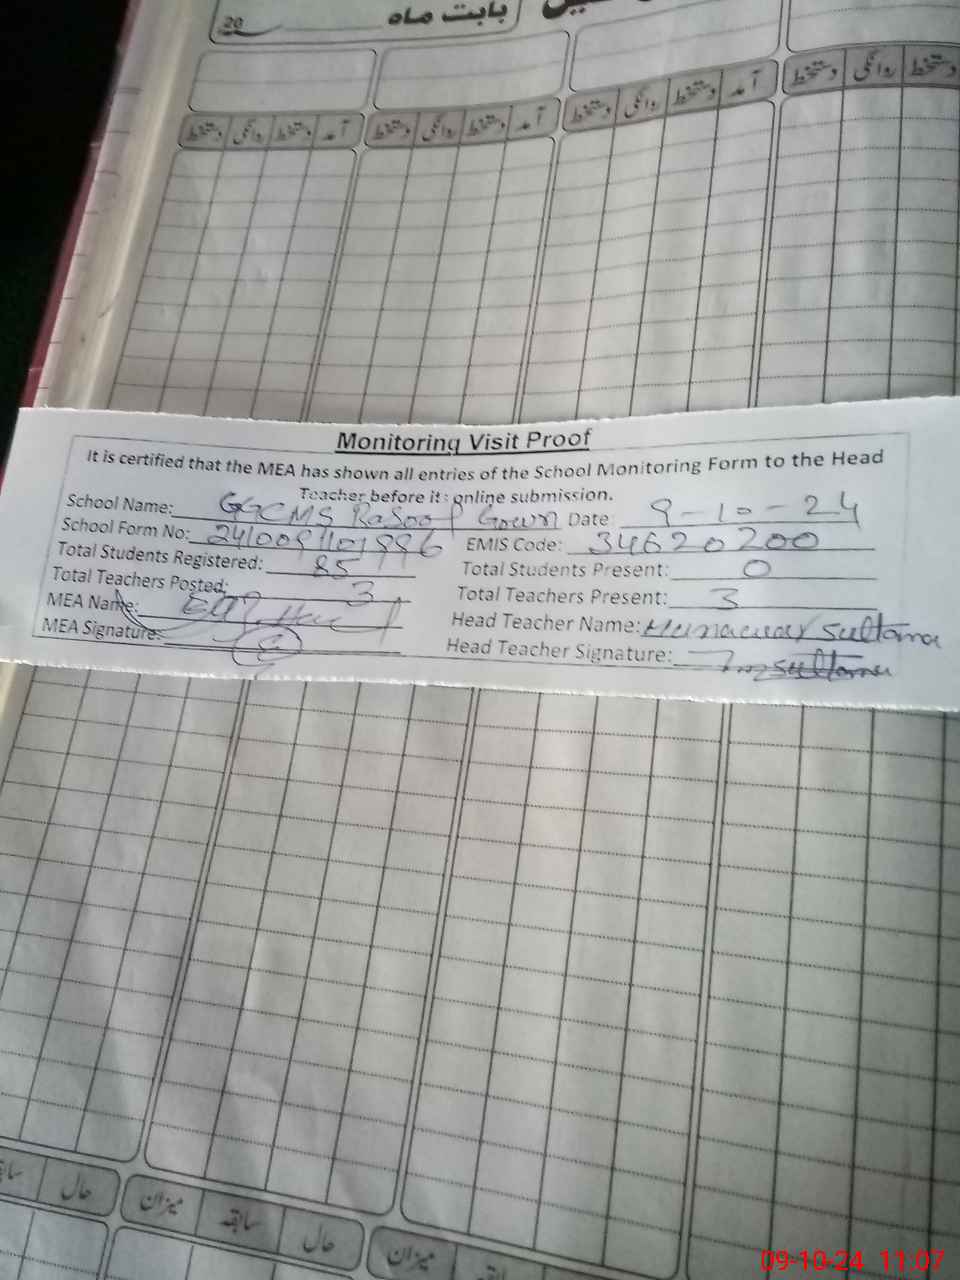 20 بابت ماہ
دستخط روانگی دستخط
آمد دستخط روانگی دستخط
آمد دستخط روانگی دستخط
آمد دستخط روانگی دستخط
Monitoring Visit Proof
It is certified that the MEA has shown all entries of the School Monitoring Form to the Head
Teacher before its online submission.
School Name: GGCMS Rasool Date: 9-10-24
School Form No: 241009101996 EMIS Code: 34620200
Total Students Registered: 85 Total Students Present: 0
Total Teachers Posted: 3 Total Teachers Present: 3
MEA Name: Head Teacher Name: Sultana
MEA Signature: Head Teacher Signature: Sultana
حال
میزان سابقہ حال
میزان
09-10-24 11:07